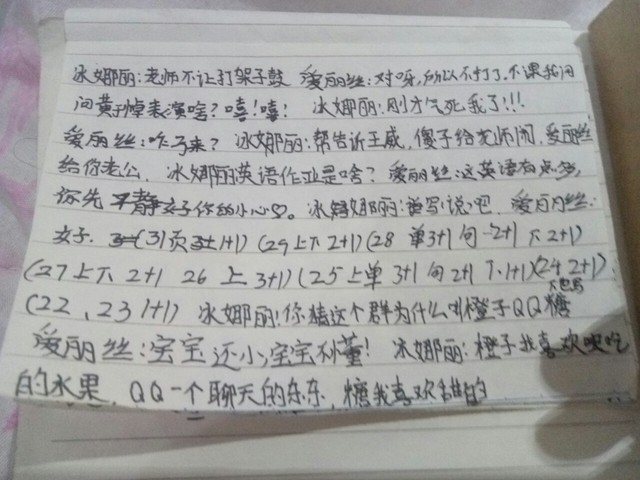 冰娜丽:老师不让打架子鼓 爱丽丝:对呀,所以不打了.下课我问
问黄子悼表演啥?嘻!嘻! 冰娜丽:刚才气死我了!!!
爱丽丝:咋了来? 冰娜丽:帮告诉王威,傻子给老师闹,爱丽丝
给你老公. 冰娜丽英语作业是啥? 爱丽丝:这英语有点多,
你先平静安好你的小心♡。冰娜丽:说吧. 爱丽丝:
好. (31页 1+1) (29上下2+1)(28 单3+1 句2+1 下2+1)
(27上下 2+1 26 上3+1)(25上单 3+1 句2+1 下1+1)(24 2+1)
(22、23 1+1) 冰娜丽:你猜这个群为什么叫橙子QQ糖
爱丽丝:宝宝还小,宝宝不懂! 冰娜丽:橙子我喜欢吃
的水果,QQ一个聊天的东东,糖我喜欢甜的